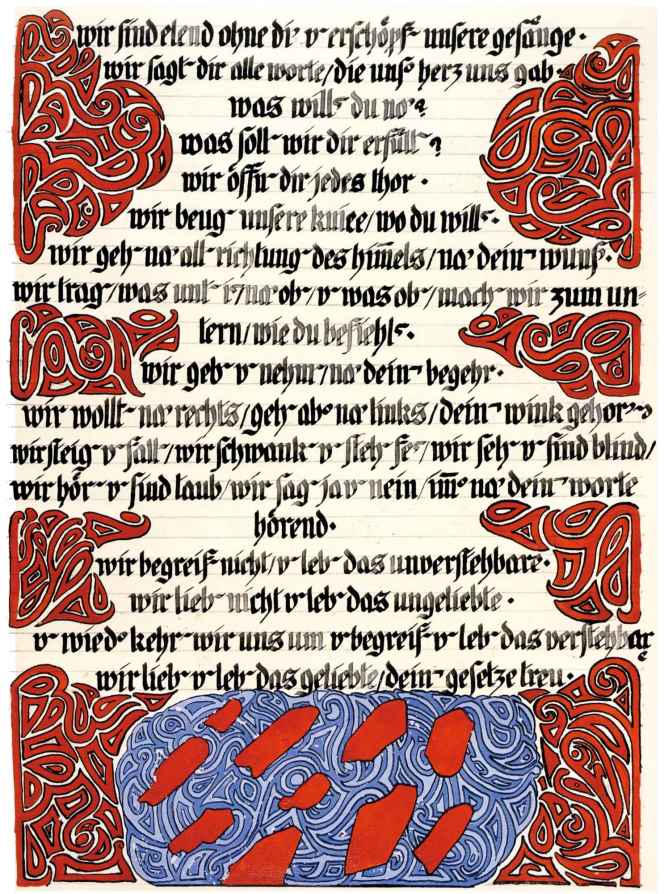 wir sind elend ohne di' v erschöpf~ unsere gesänge·
wir sagt~ dir alle worte/die uns~ herz uns gab·
was will~ du no'?
was soll~ wir dir erfüll~?
wir öffn~ dir jedes thor·
wir beug~ unsere kniee/wo du will~·
wir geh~ na' all~ richtung~ des him̄els/na' dein~ wuns~·
wir trag~/was unt~ i~/na' ob~/v~ was ob~/mach~ wir zum un=
tern/wie du befiehl~·
wir geb~ v~ nehm~/na' dein~ begehr·
wir wollt~ na' rechts/geh~ abe na' links/dein~ wink gehor~
wir steig~ v~ fall~/wir schwank~ v~ steh~ fe~/wir seh~ v~ sind blind/
wir hör~ v~ sind taub/wir sag~ ja v~ nein/im̄~ na' dein~ worte
hörend·
wir begreif~ nicht/v~ leb~ das unverstehbare·
wir lieb~ nicht v~ leb~ das ungeliebte·
v~ wied~ kehr~ wir uns um v~ begreif~ v~ leb~ das verstehbare
wir lieb~ v~ leb~ das geliebte/dein~ gesetze treu·